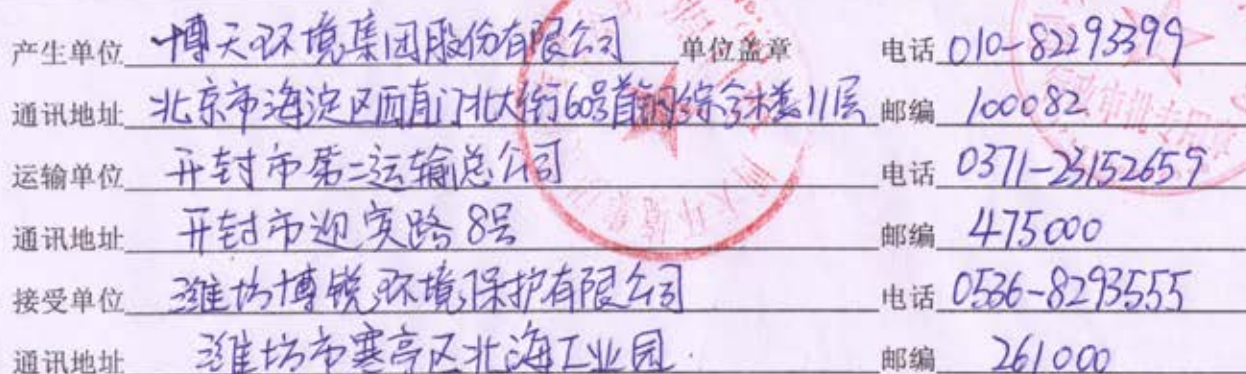 产生单位 博天环境集团股份有限公司 单位盖章 电话 010-82293399
通讯地址 北京市海淀区西直门北大街60号首钢综合楼11层 邮编 100082
运输单位 开封市第二运输总公司 电话 0371-23152659
通讯地址 开封市迎宾路8号 邮编 475000
接受单位 潍坊博锐环境保护有限公司 电话 0536-8293555
通讯地址 潍坊市寒亭区北海工业园 邮编 261000
审批专用章